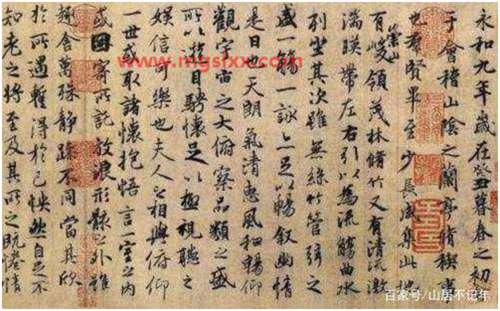 永和九年歲在癸丑暮春之初會
于會稽山陰之蘭亭脩稧事
也羣賢畢至少長咸集此地
有崇山峻領茂林脩竹又有清流激
湍暎帶左右引以為流觴曲水
列坐其次雖無絲竹管弦之
盛一觴一詠亦足以暢敘幽情
是日也天朗氣清惠風和暢仰
觀宇宙之大俯察品類之盛
所以遊目騁懷足以極視聽之
娛信可樂也夫人之相與俯仰
一世或取諸懷抱悟言一室之內
或因寄所託放浪形骸之外雖
趣舍萬殊靜躁不同當其欣
於所遇蹔得於己怏然自足不
知老之將至及其所之既惓情
www.mgsixx.com
百家号/山居不记年